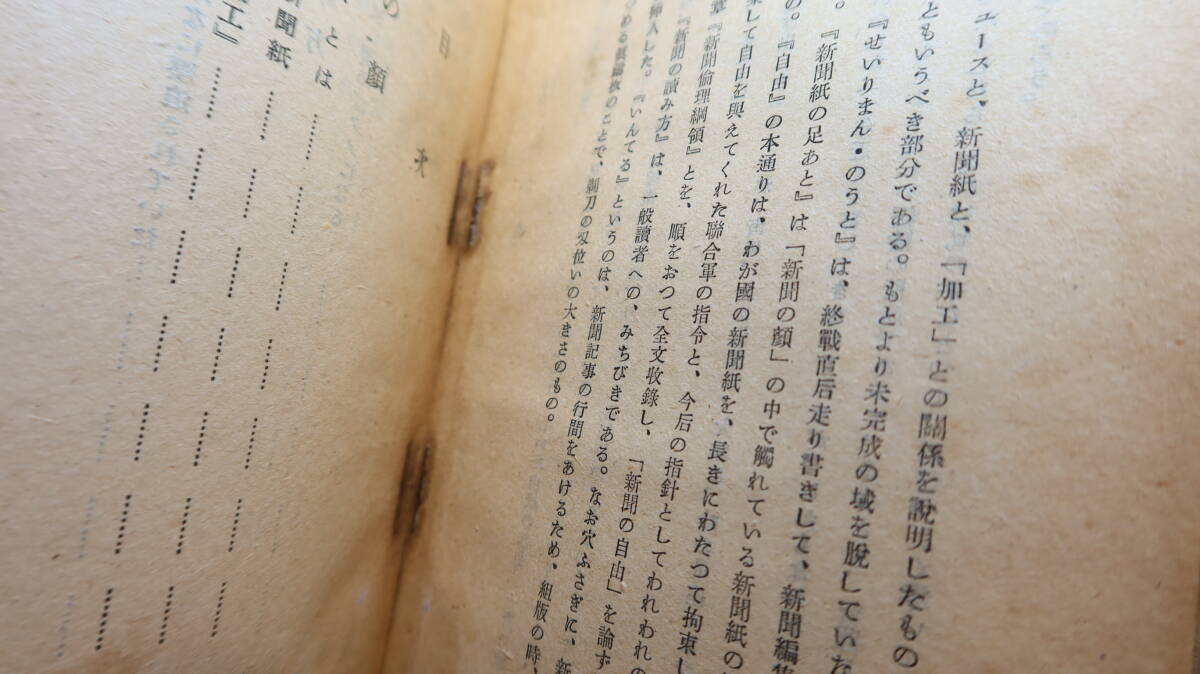 ュースと、新聞紙と、「加工」との關係を説明したもの
ともいうべき部分である。もとより未完成の域を脱していな
『せいりまん・のうと』は、終戰直后走り書きして、新聞編集
。『新聞紙の足あと』は「新聞の顔」の中で觸れている新聞紙の
の。『自由』の本通りは、わが國の新聞紙を、長きにわたつて拘束し
束して自由を與えてくれた聯合軍の指令と、今后の指針としてわれわれの
章『新聞倫理綱領』とを、順をおつて全文收錄し、「新聞の自由」を論ず
『新聞の讀み方』は、一般讀者への、みちびきである。なお穴ふさぎに、新
挿入した。『いんてる』というのは、新聞記事の行間をあけるため、組版の時、
のことで、剃刀の刄位いの大きさのもの。
目次
の顔
とは
新聞紙
工』